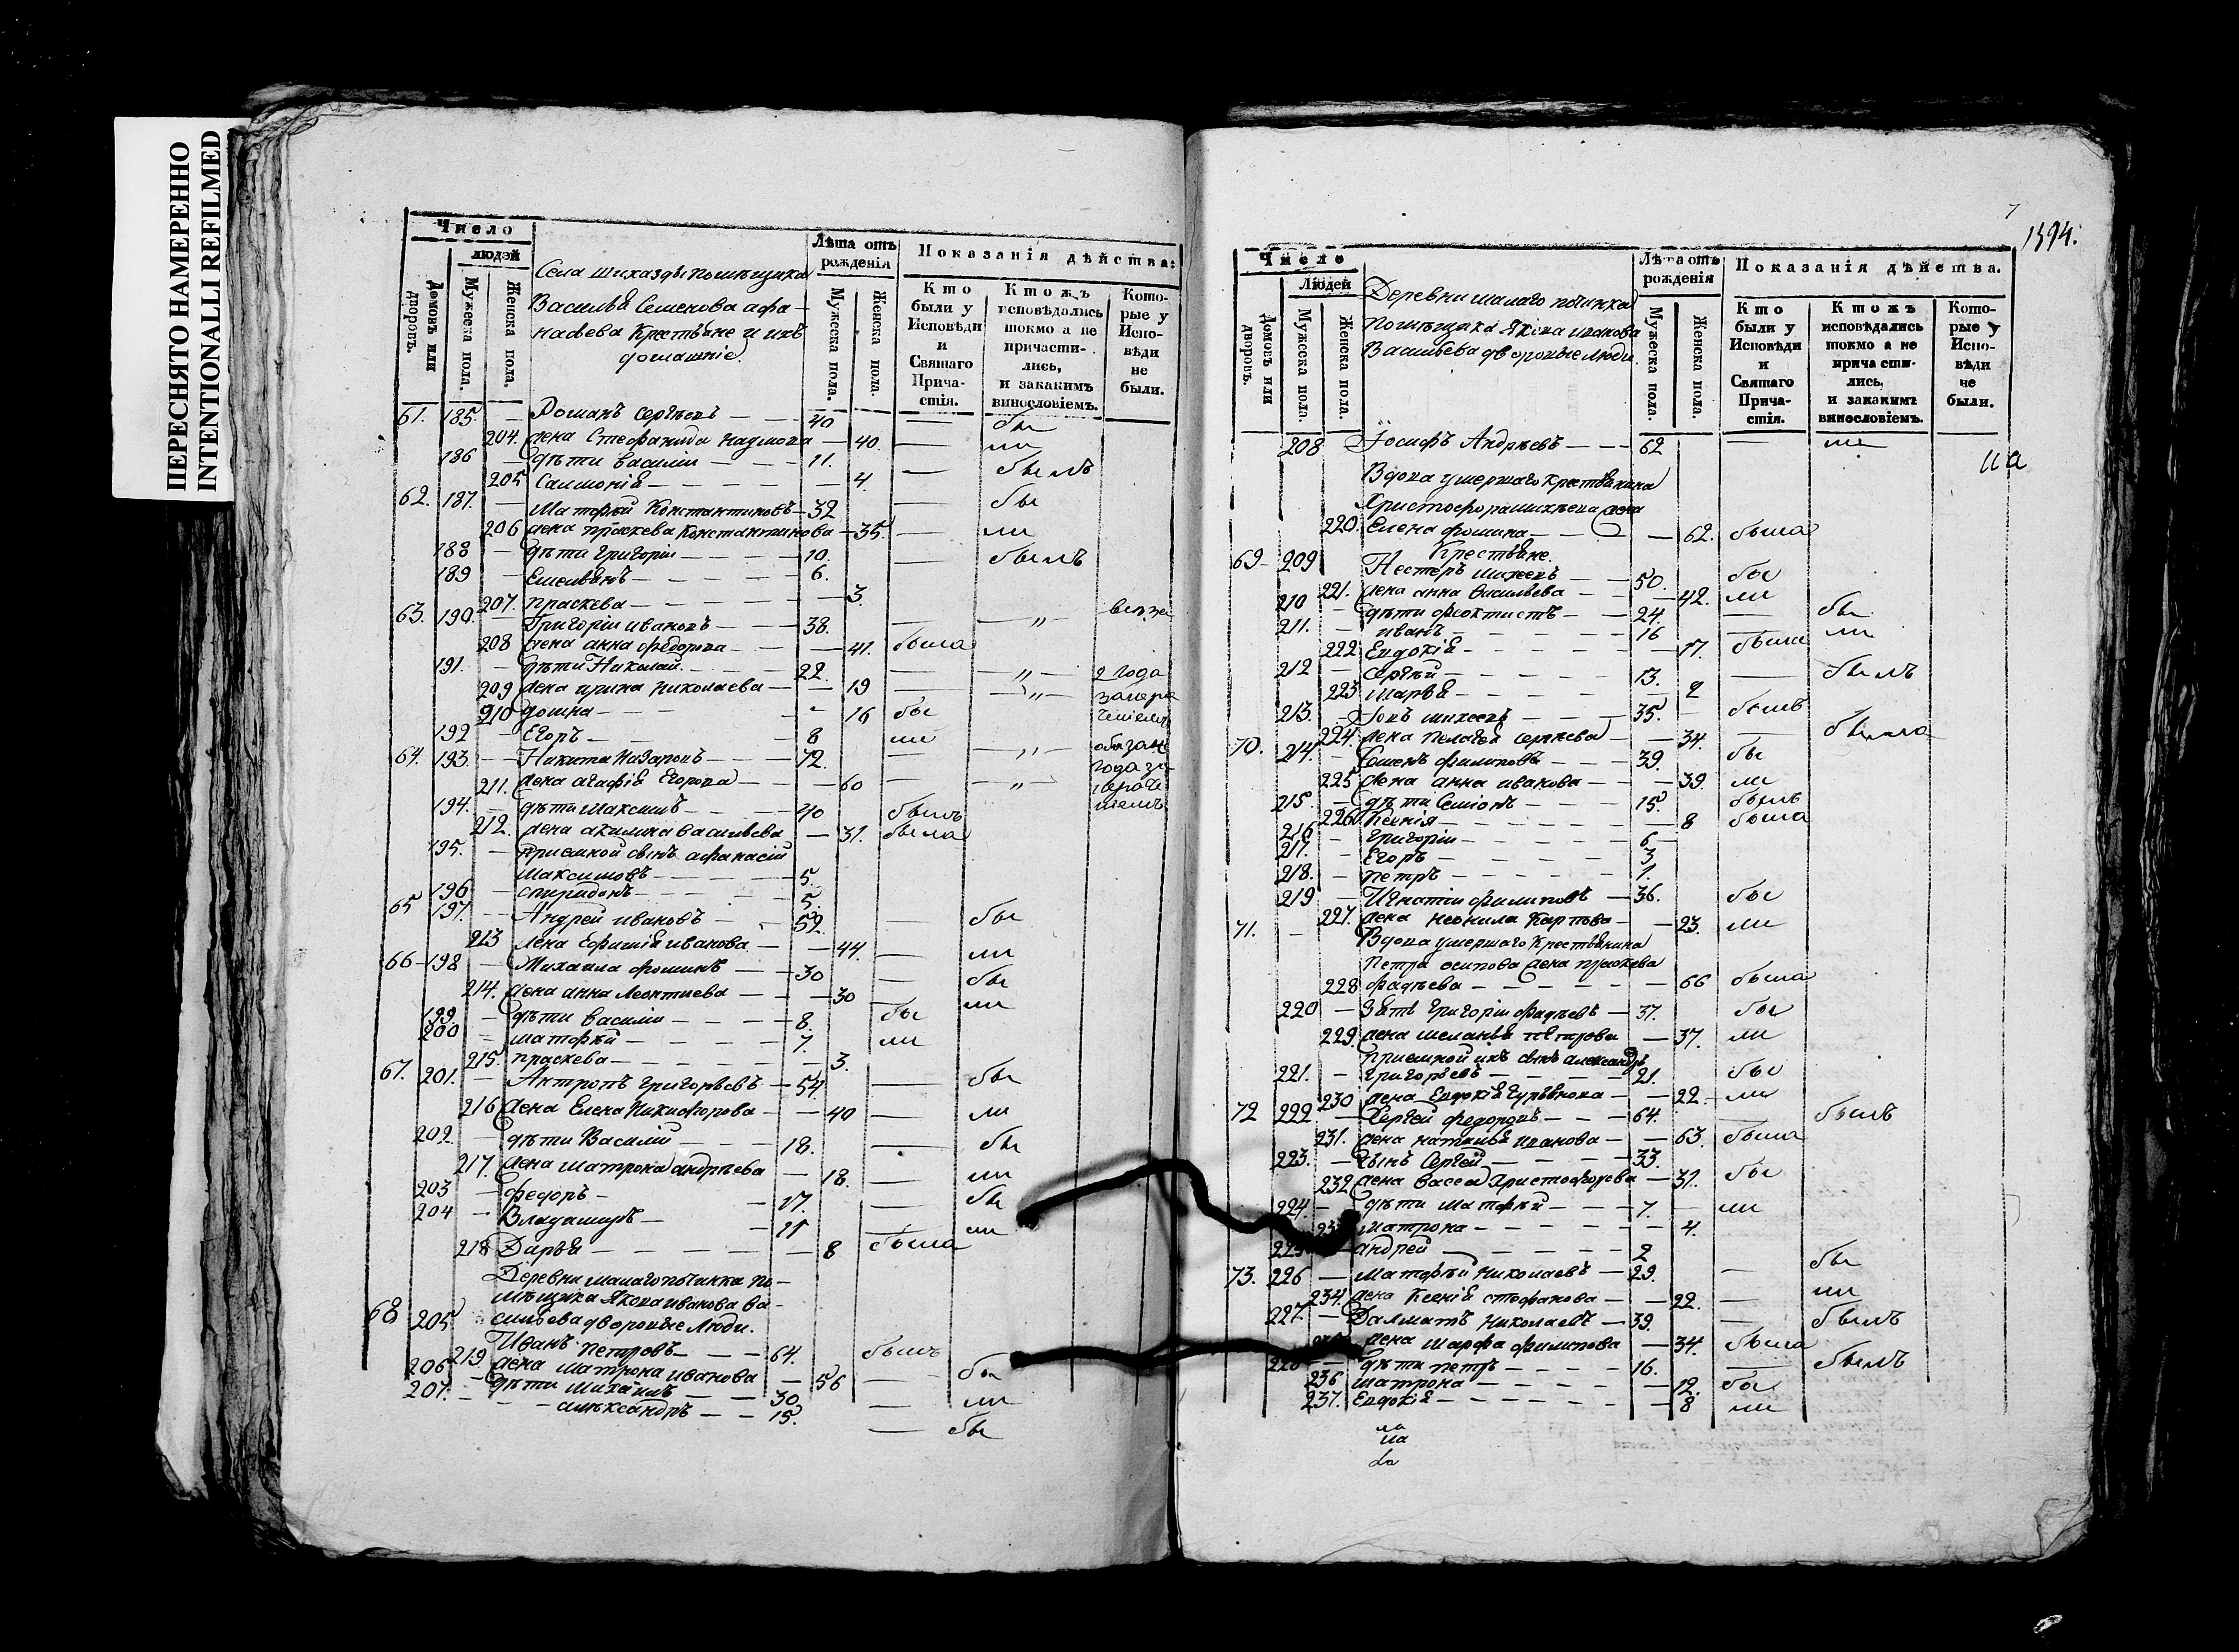 ПЕРЕСНЯТО НАМЕРЕННО
INTENTIONALLI REFILMED
Число
людей
Домовъ или дворовъ.
Мужеска пола.
Женска пола.
Села помѣщика
Василья Семенова Афа-
насьева Крестьяне и ихъ
домашніе
Лѣта отъ рожденія
Мужеска пола.
Женска пола.
Показанія дѣйства:
Кто были у Исповѣди и Святаго Прича-стія.
Ктожъ исповѣдались токмо а не причасти-лись, и закакимъ винословіемъ.
Кото-рые у Испо-вѣди не были.
61. 185. — Романъ Сергѣевъ — — 40 — бы
204. жена Стефанида Наумова — 40. — ли
186 — дѣти Василій — — — 11.
205 Саломонія — — — — — 4. — былъ
62. 187. — Матфѣй Константиновъ — 32 — бы
206 жена Праскева Константинова — 35. — ли
188 — дѣти Григорій — — — — 10. — былъ
189 — Емельянъ — — — — 6.
207. Праскева — — — — — 3.
63. 190. — Григорій Ивановъ — — — 38. — „
208 жена Анна Федорова — — 41. была
191. — дѣти Николай — — — 22. — „ — 2 года
209 жена Ирина Николаева — — 19 — „
210 Домна — — — 16 бы
192 — Егоръ — — — 8 ли
64. 193. — Никита Назаровъ — — 72. — „
211. жена Агафія Егорова — — 60 — „
194. — дѣти Максимъ — — — 40 былъ
212. жена Акилина Васильева — 31. была
195. — Приемной сынъ Афанасій
Максимовъ — — — — 5.
196 — Спиридонъ — — — — 5.
65 197. — Андрей Ивановъ — — 52. — бы
213 жена Ефимія Иванова — — 44. — ли
66 — 198 — Михаила Фоминъ — — 30 — бы
214. жена Анна Леонтиева — — — 30 — ли
199 — дѣти Василій — — — — 8. бы
200 — Матфѣй — — — — 7. ли
215. Праскева — — — — — 3.
67. 201. — Антропъ Григорьевъ — 54. — бы
216 жена Елена Никифорова — — 40 — ли
202. — дѣти Василій — — — 18. — бы
217. жена Матрона Андрѣева — 18. — ли
203 — Федоръ — — 17. — бы
204 — Владимиръ — — 11 — ли
218 Дарья — — — — — 8 была
Деревни малаго починка по-
мѣщика Якова Иванова Ва-
сильева дворовые люди.
68 205 Иванъ Петровъ — — — 64. былъ
219 жена Матрона Иванова — 56 — бы
206 — дѣти Михаилъ — — 30. — ли
207. — Александръ — — 15. — бы
1394.
Число
Людей
Домовъ или дворовъ.
Мужеска пола
Женска пола.
Деревни малаго починка
Помѣщика Якова Иванова
Васильева дворовые люди
Лѣта отъ рожденія
Мужеска пола.
Женска пола.
Показанія дѣйства.
Кто были у Исповѣди и Святаго Прича-стія.
Ктожъ исповѣдались токмо а не прича сти-лись, и закакимъ винословіемъ.
Кото-рые у Испо-вѣди не были.
208 Іосифъ Андрѣевъ — — — 62 — ли
Вдова умершаго Крестьянина
Христофора жена
220. Елена Фомина — — — 62. была
Крестьяне.
69 — 209 Нестеръ Михеевъ — — 50. бы
221. жена Анна Васильева — — 42. ли
210 — дѣти Фиоктистъ — — 24. — бы
211. — Иванъ — — — — 16 — ли
222 Евдокія — — — — — 17. была
212 — Сергѣй — — — — 13. — былъ
223 Марья — — — — — 9
213. — Іовъ Михеевъ — — — 35. — былъ
224. жена Пелагея Сергѣева — — 34. — была
70. 214. — Семенъ Филиповъ — — 39. бы
225 жена Анна Иванова — — — 39. ли
215. — дѣти Семіонъ — — — 15. былъ
226 Ксенія — — — — — 8 была
216 — Григорій — — — — 6 —
217. — Егоръ — — — — 3
218. — Петръ — — — — 1.
219 — Игнатій Филиповъ — 36. бы
227. жена Неонила Карпова — 23. ли
71. — Вдова умершаго Крестьянина
Петра Осипова жена Праскева
228 Фадѣева — — — — — 66 была
220 — Зять Григорій Фадѣевъ — 37. бы
229. жена Меланья Петрова — 37. ли
Приемной ихъ сынъ Александръ
221. — Григорьевъ — — — — 21. бы
230 жена Евдокія Гурьянова — — 22 — ли
72 222 — Сергей Федоровъ — — — 64. — былъ
231. жена Наталья Иванова — — 63. была
223. — сынъ Сергей — — — — 33.
232 жена Васса Христофорова — 31. бы
224. — дѣти Матфѣй — — — 7. — ли
Матрона — — — — — 4.
225 Андрей — — — — 2
73. 226 — Матфѣй Николаевъ — 29. — бы
234. жена Ксенія Стефанова — — 22. — ли
227. — Далматъ Николаевъ — 39. — былъ
жена Марфа Филипова — 34. была
228 — дѣти Петръ — — — — 16. — былъ
236 Матрона — — — — — 12. бы
237. Евдокія — — — — — 8 ли